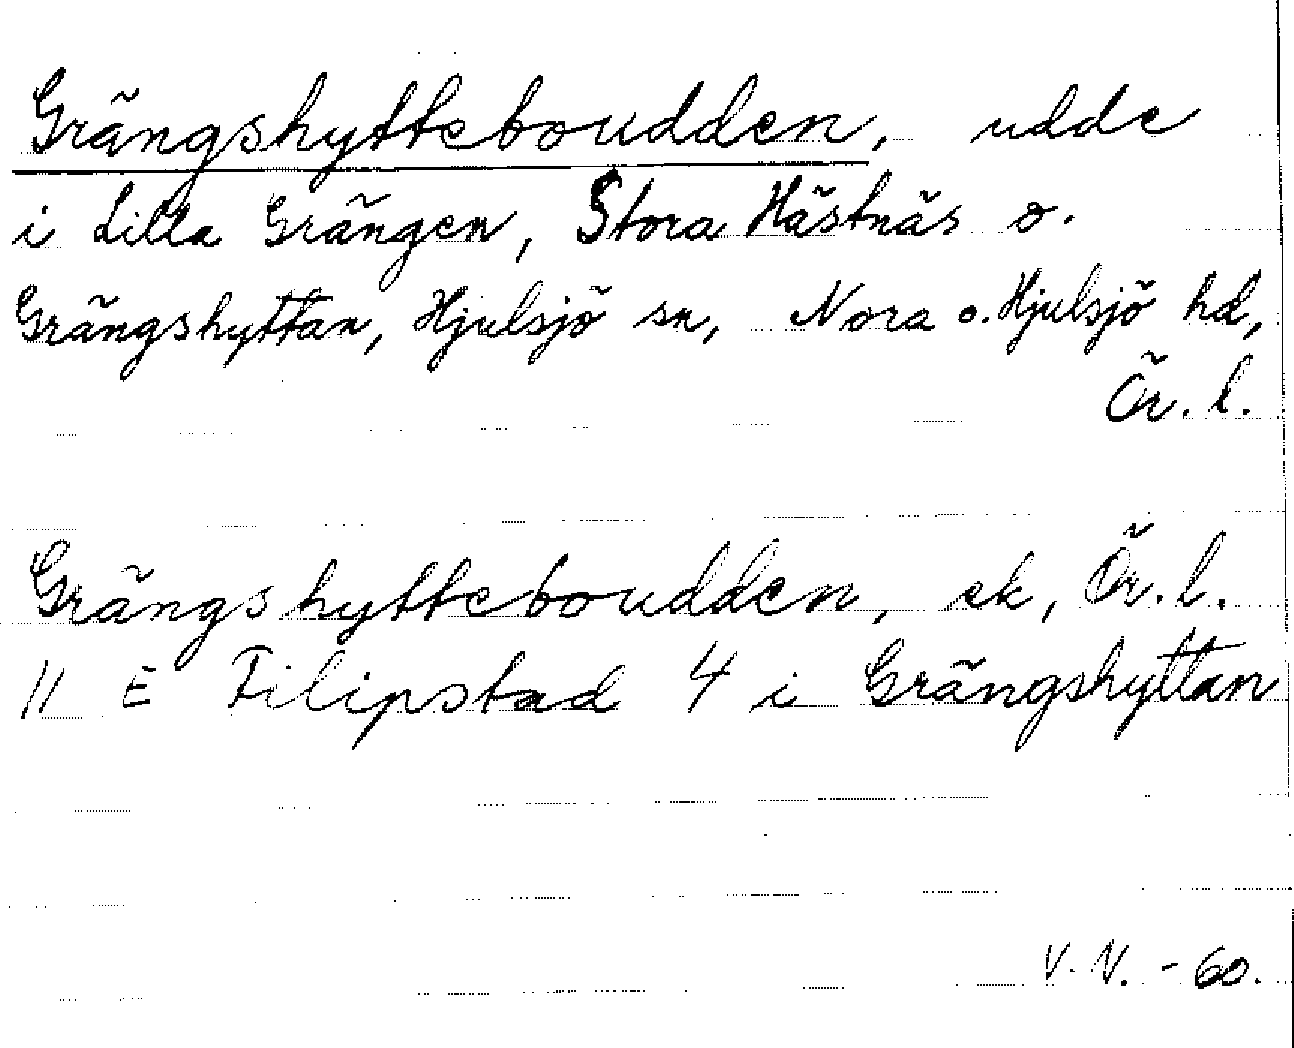 Grängshytteboudden, udde
i Lilla Grängen, Stora Hästnäs o.
Grängshyttan, Hjulsjö sn, Nora o. Hjulsjö hd,
Ör. l.
Grängshytteboudden, ek, Ör. l.
11 E Filipstad 4 i Grängshyttan
V. N. - 60.